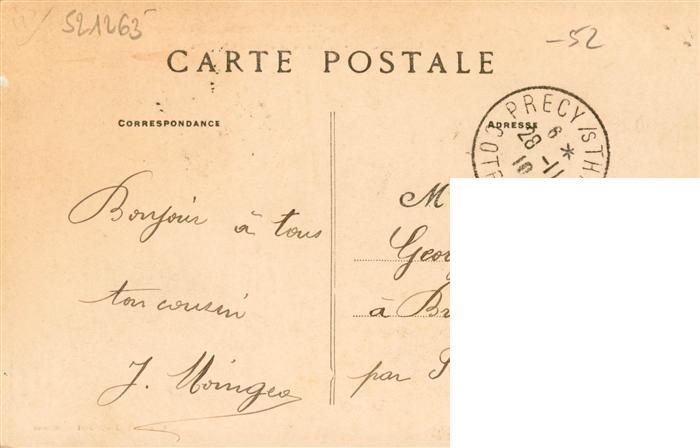 521265
-52
CARTE POSTALE
CORRESPONDANCE
ADRESSE
PRECY/STH
COTE
6 *
28 -11
19
M
Geor
à Br
par
Bonjour à tous
ton cousin
J. Moingeo